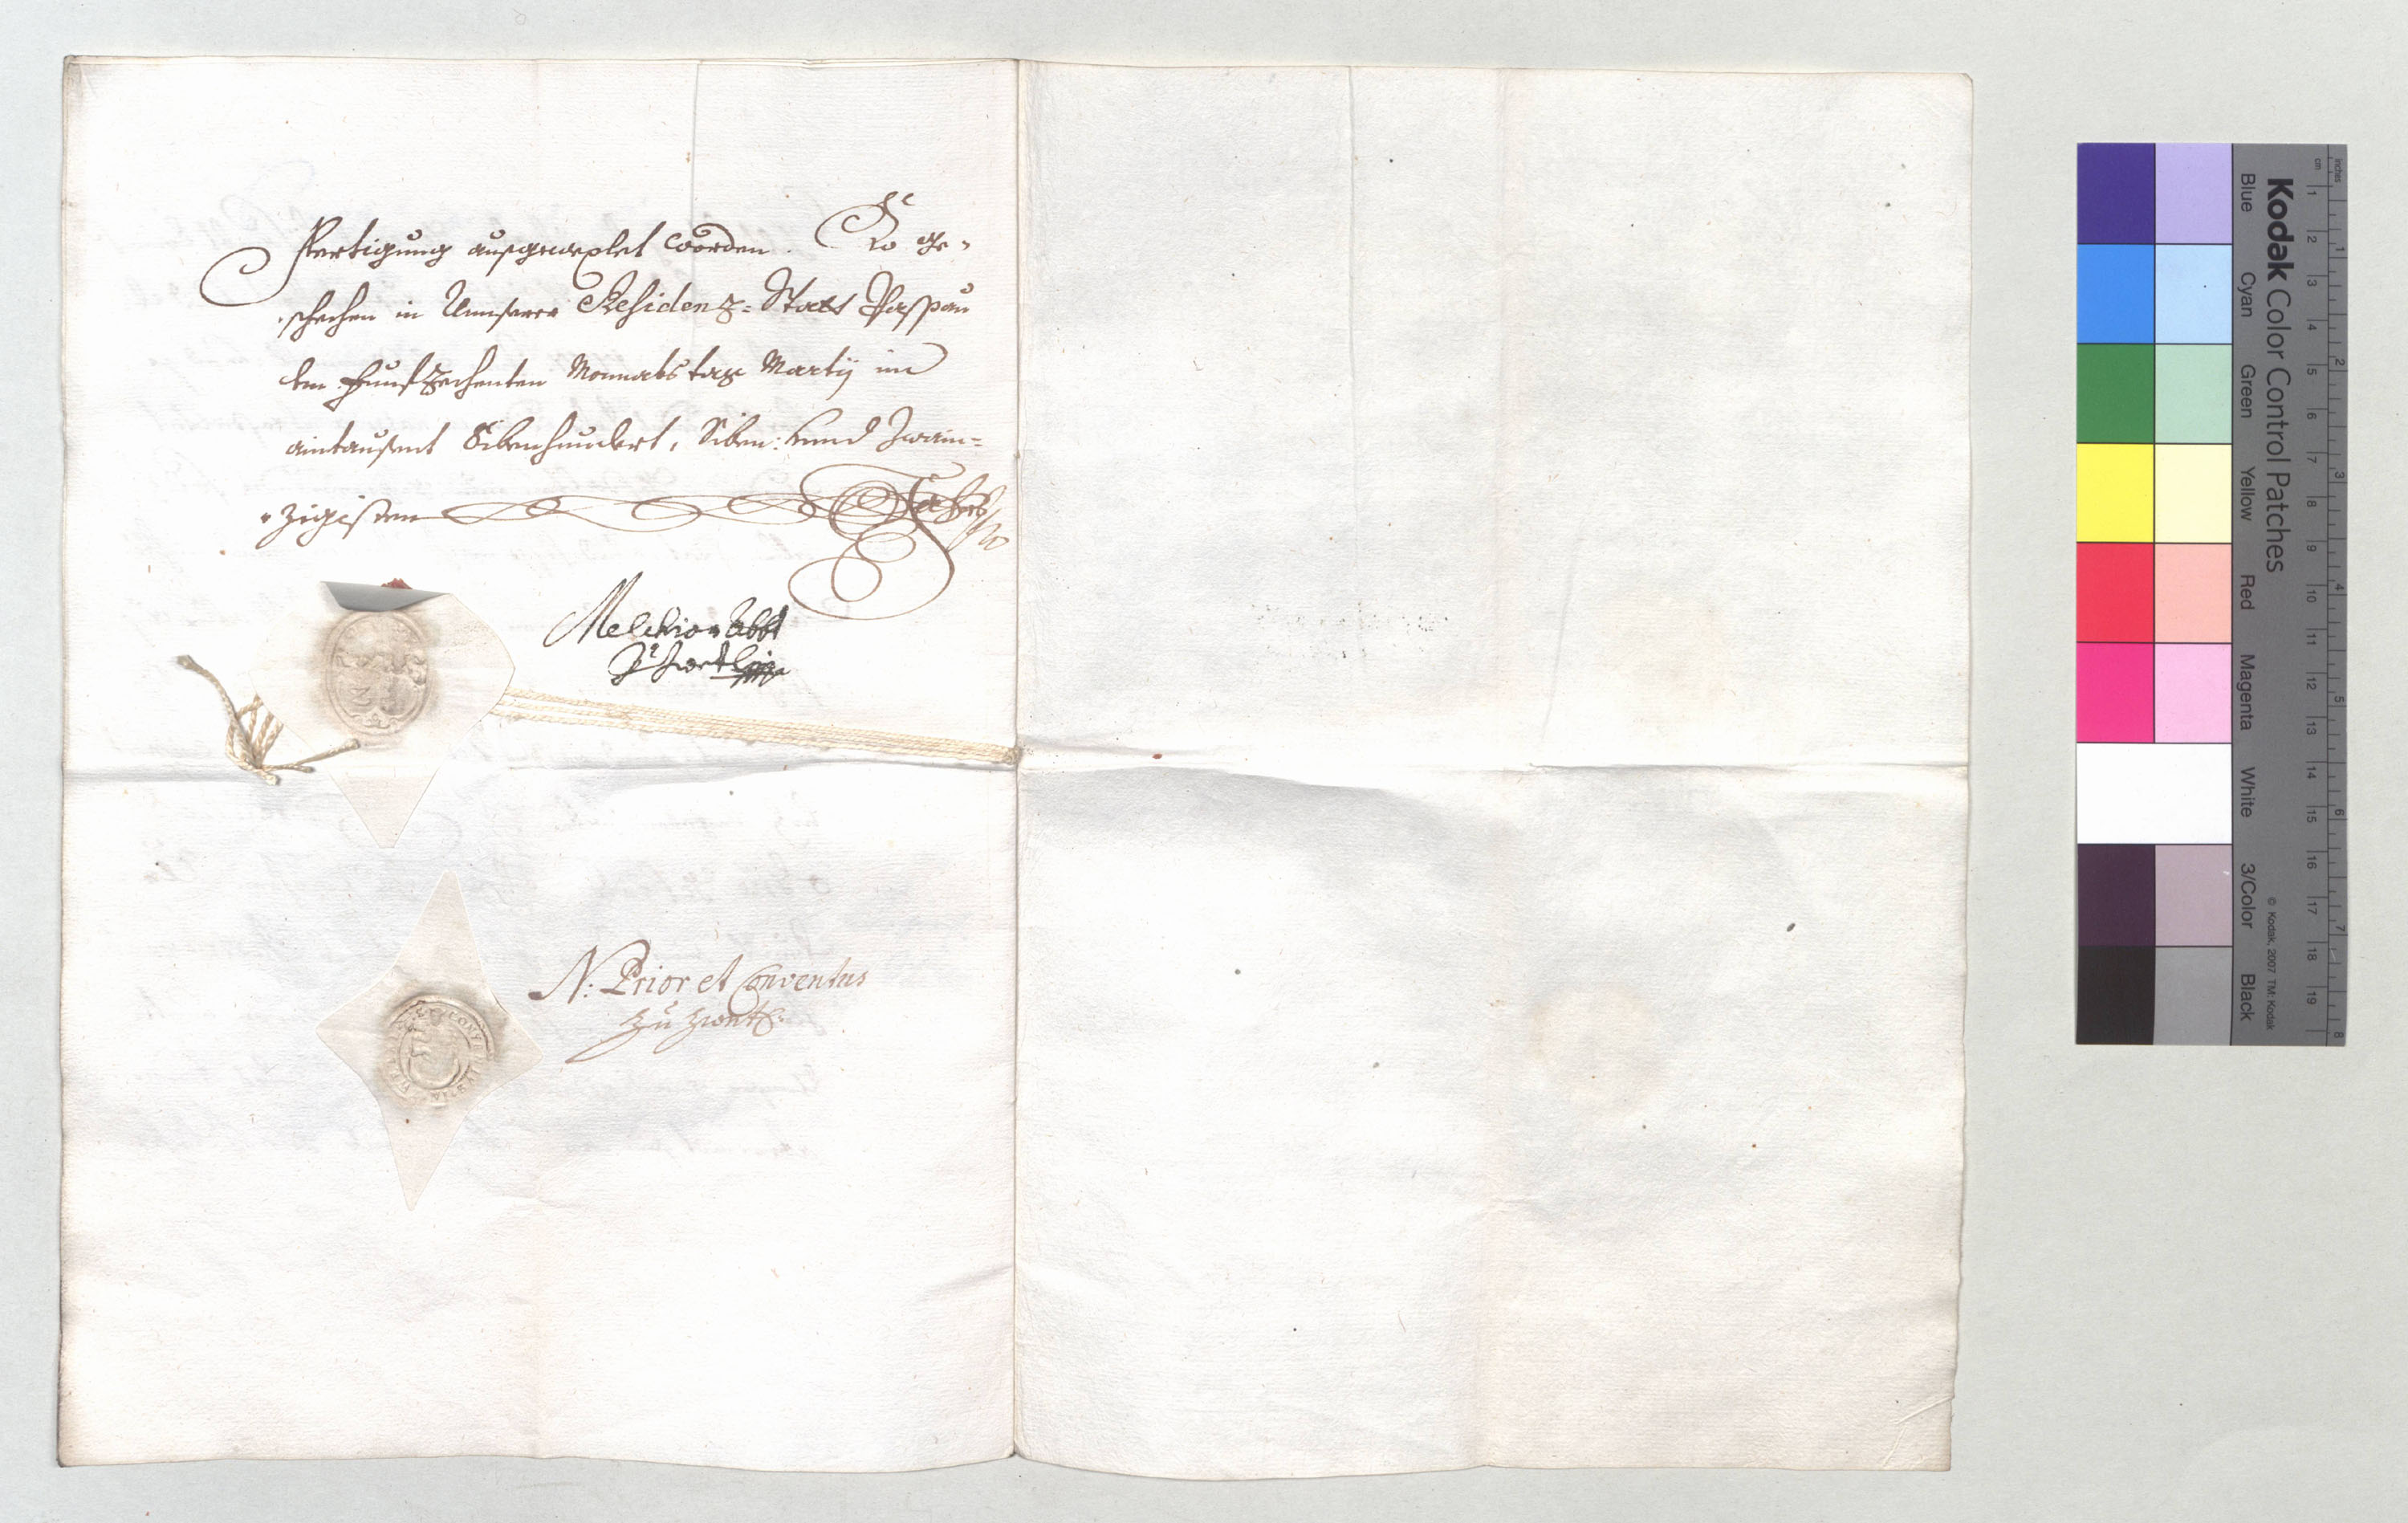 Ferttigung ausgewexlet worden. So ge-
schechen in Unnserer Residenz-Statt Passau
den Funfzechenten Monnats tage Martij im
aintausent Sibenhundert, Siben: unnd Zwain=
zigisten Jahrs
Melchior Abbt
zu Zwetl
N: Prior et Conventus
zu Zwetl
Kodak Color Control Patches
Blue Cyan Green Yellow Red Magenta White 3/Color Black
© Kodak, 2007 TM: Kodak
inches 1 2 3 4 5 6 7 8
cm 1 2 3 4 5 6 7 8 9 10 11 12 13 14 15 16 17 18 19